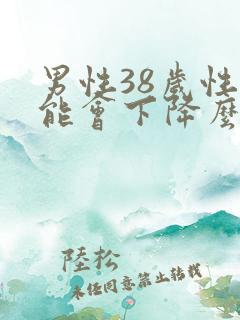 男性38歲性
能會下降麼
陸松
未經同意禁止轉載